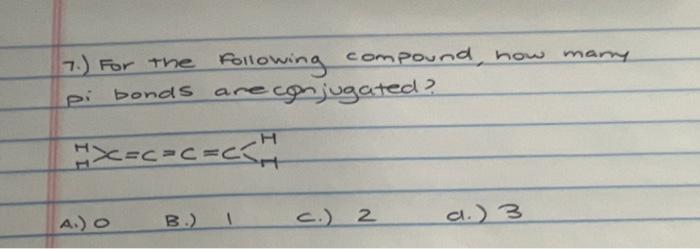 7.) For the following compound, how many
pi bonds are conjugated?
H H C=C=C=C H H
A.) 0 B.) 1 C.) 2 d.) 3